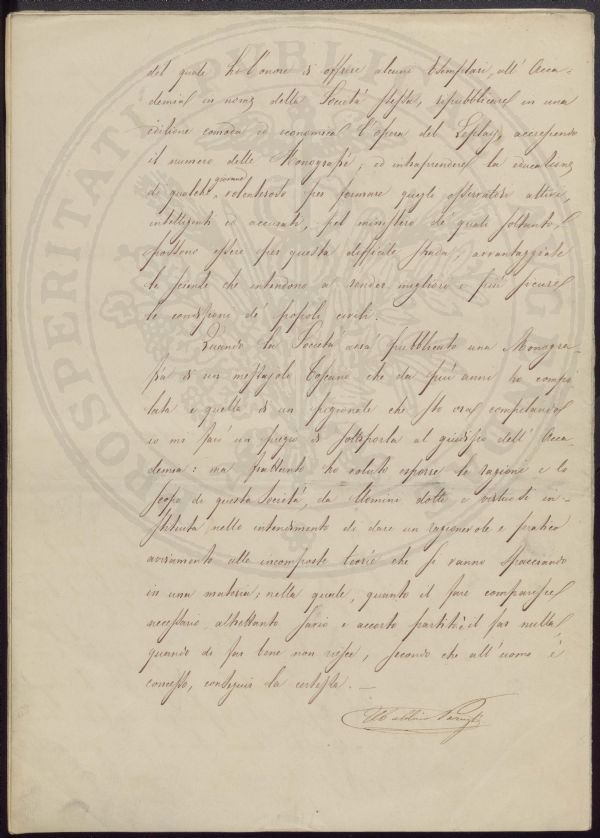 del quale ho l'onore di offrire alcuni Esemplari all' Acca-
demia in nome della Società stessa, ripubblicare in una
edizione comoda ed economica l'opera del Leplay, accrescendo
il numero delle Monografie; ed intraprendere la educazione
di qualche giovane volenteroso per formare quegli osservatori attivi,
intelligenti ed accurati, pel ministero de' quali soltanto,
possono essere per questa difficile strada, avvantaggiate
le scienze che intendono a render migliori e più sicure
le condizioni de' popoli civili.
Quando la Società avrà pubblicato una Monogra-
fia di un mezzajolo Toscano che da più anni ho compi-
lata e quella di un pigionale che sto ora compilando
io mi farò un pregio di sottoporla al giudizio dell' Acca-
demia: ma frattanto ho voluto esporre le ragioni e lo
scopo di questa Società, da Uomini dotti e virtuosi in-
stituita, nello intendimento di dare un ragionevole e pratico
avviamento alle incomposte teorie che si vanno spacciando
in una materia; nella quale, quanto il fare comparisce
necessario, altrettanto savio e accorto partito è il far nulla
quando di far bene non riesce, secondo che all' uomo è
concesso, conseguir la certezza. —
Ubaldino Peruzzi
PROSPERITATI PUBLICAE